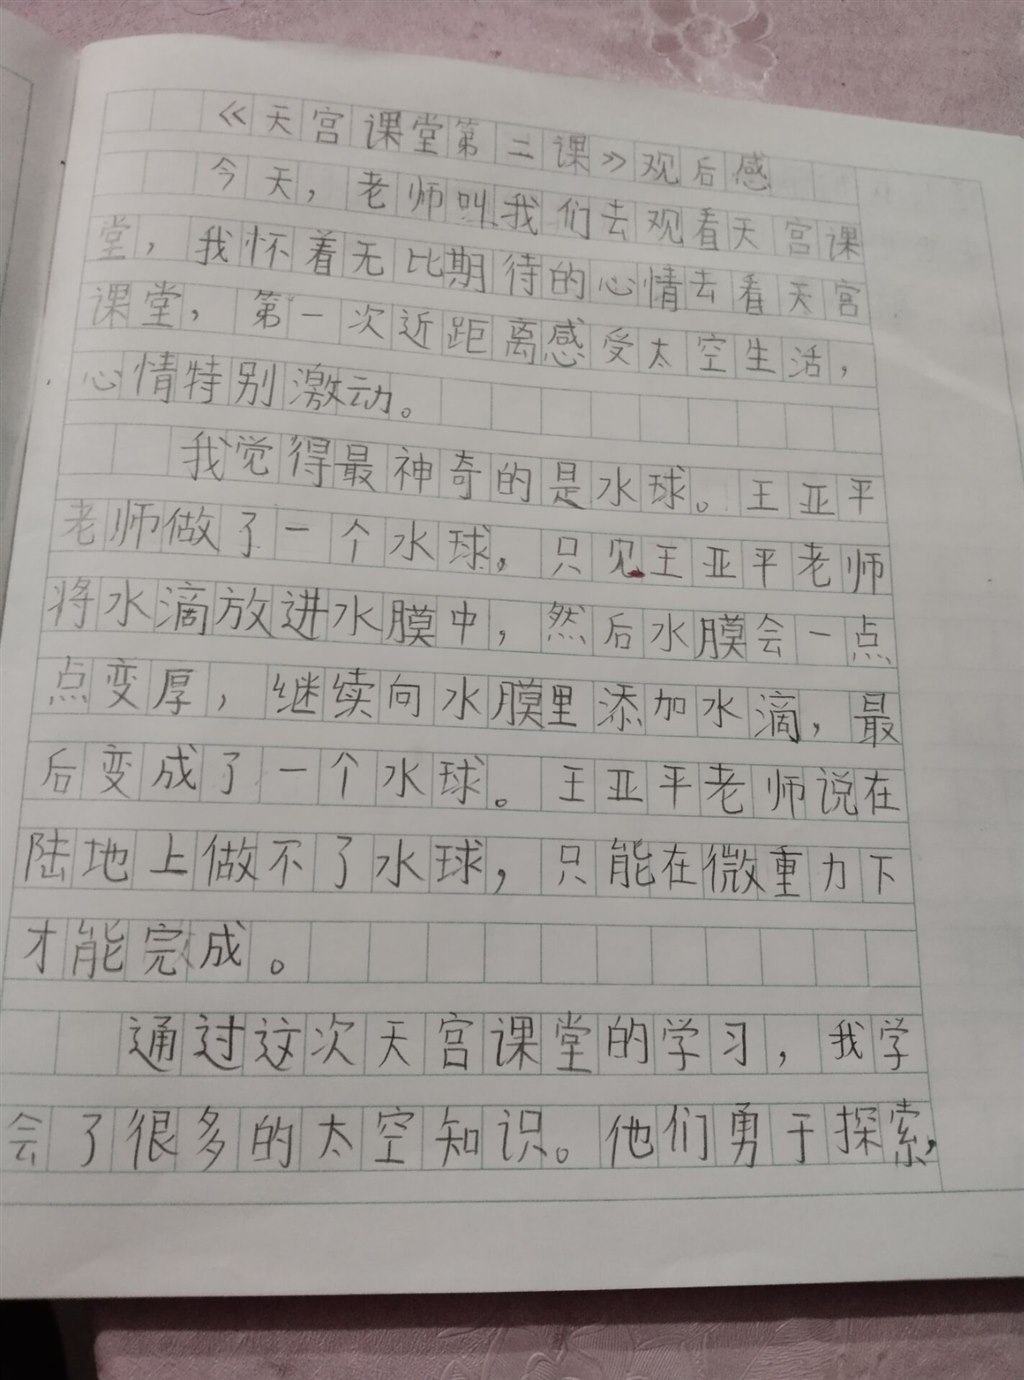 《天宫课堂第二课》观后感
今天，老师叫我们去观看天宫课
堂，我怀着无比期待的心情去看天宫
课堂，第一次近距离感受太空生活，
心情特别激动。
我觉得最神奇的是水球。王亚平
老师做了一个水球，只见王亚平老师
将水滴放进水膜中，然后水膜会一点
点变厚，继续向水膜里添加水滴，最
后变成了一个水球。王亚平老师说在
陆地上做不了水球，只能在微重力下
才能完成。
通过这次天宫课堂的学习，我学
会了很多的太空知识。他们勇于探索，